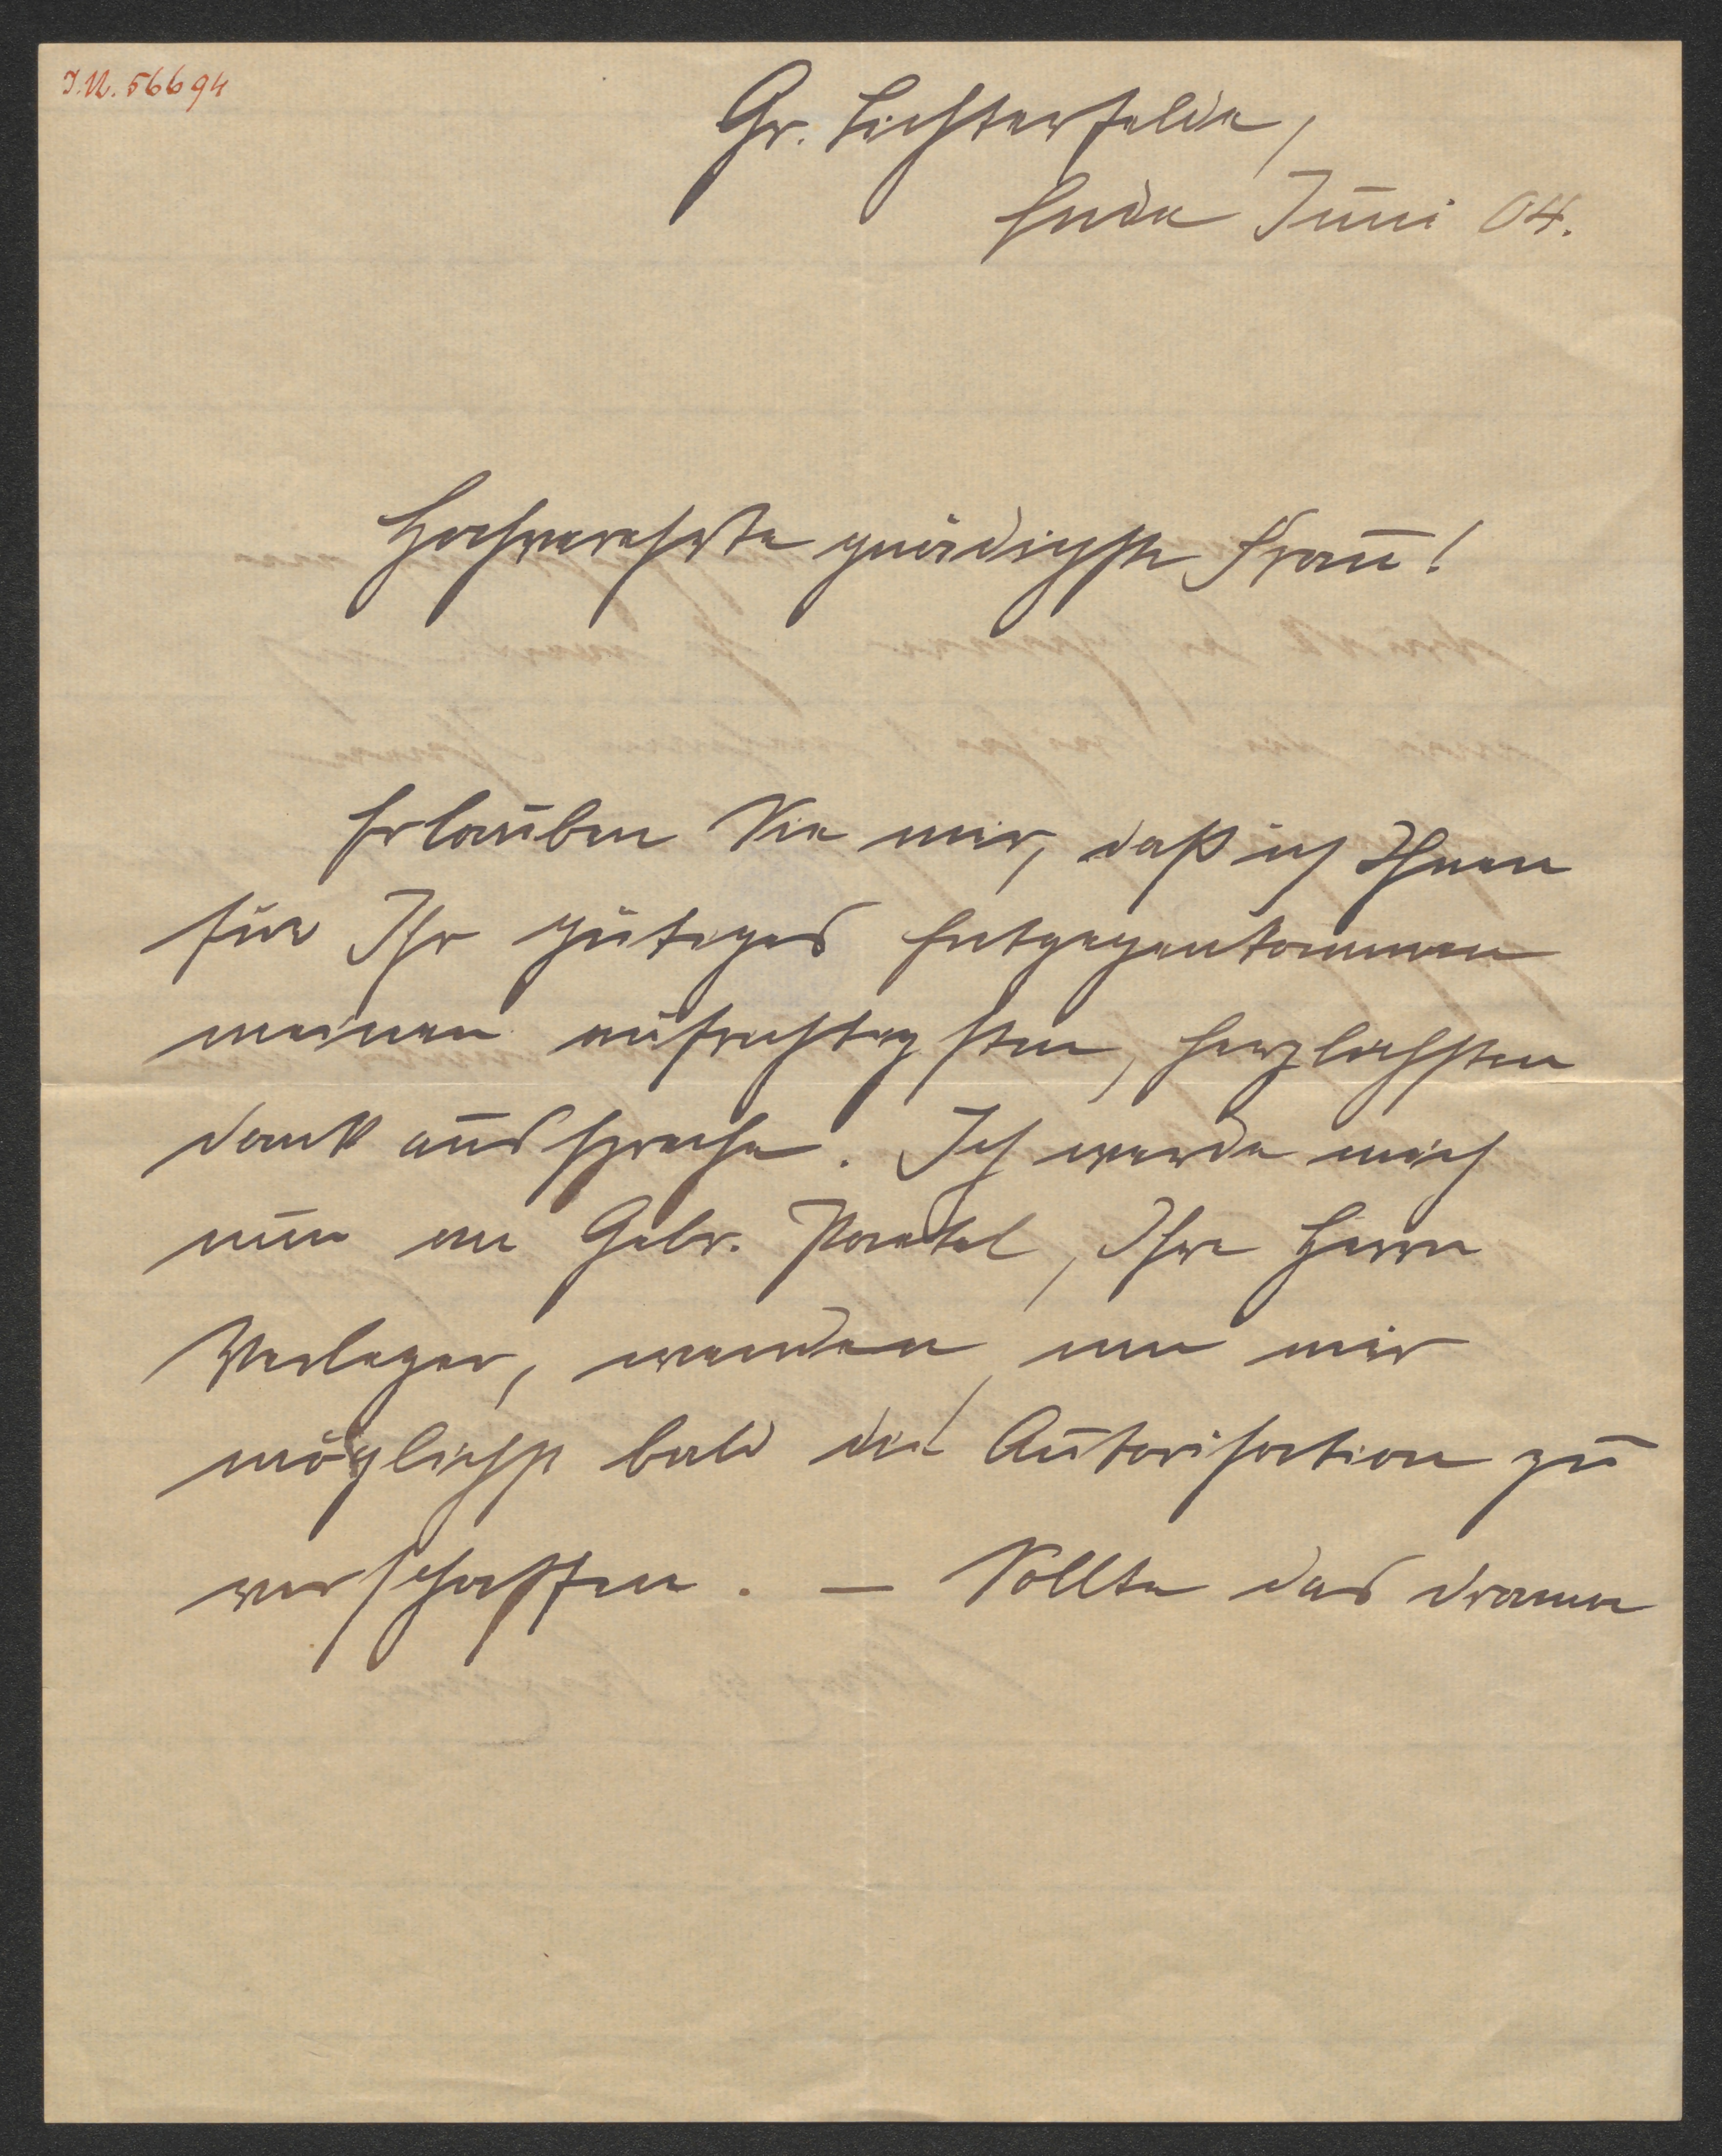 I.N. 56694
Gr. Lichterfelde,
Ende Juni 04.
Hochverehrte gnädigste Frau!
Erlauben Sie mir, daß ich Ihnen
für Ihr gütiges Entgegenkommen
meinen aufrichtigsten, herzlichsten
Dank ausspreche. Ich werde mich
nun an Gebr. Paetel, Ihre Herrn
Verleger, wenden um mir
möglichst bald die Autorisation zu
verschaffen. — Sollte das Drama